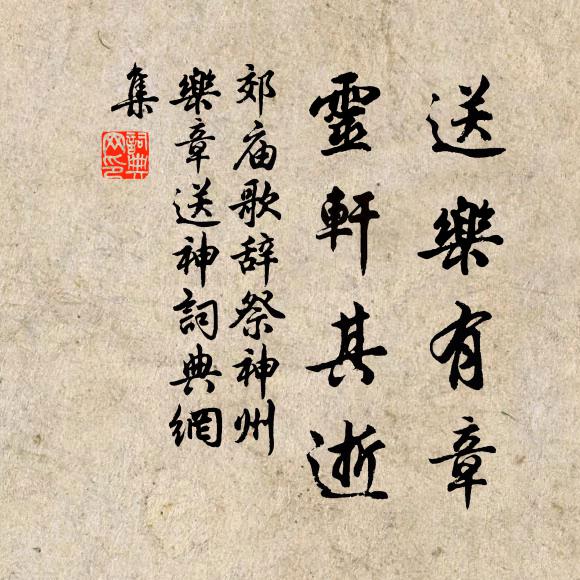 送樂有章
靈軒其逝
郊庙歌辞祭神州
樂章送神詞典網
集
詞典
网印